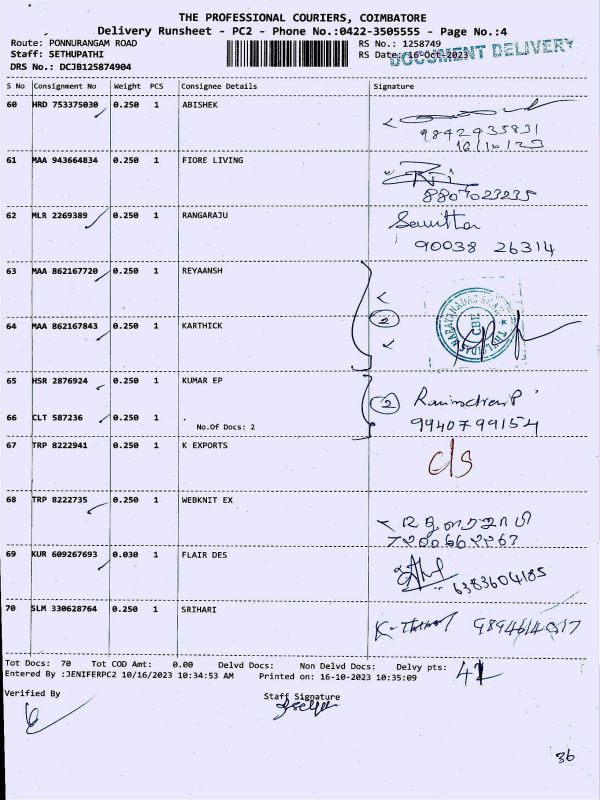 THE PROFESSIONAL COURIERS, COIMBATORE
Delivery Runsheet - PC2 - Phone No.:0422-3505555 - Page No.:4
Route: PONNURANGAM ROAD RS No.: 1258749
Staff: SETHUPATHI RS Date: 16-Oct-2023 DOCUMENT DELIVERY
DRS No.: DCJB125874904
S No Consignment No Weight PCS Consignee Details Signature
60 HRD 753375030 0.250 1 ABISHEK
9842435831
16/10/23
61 MAA 943664834 0.250 1 FIORE LIVING
8807023235
62 MLR 2269389 0.250 1 RANGARAJU
90038 26314
63 MAA 862167720 0.250 1 REYAANSH
2
64 MAA 862167843 0.250 1 KARTHICK
CBE
65 HSR 2876924 0.250 1 KUMAR EP
2
66 CLT 587236 0.250 1 .
No.Of Docs: 2
9940799154
67 TRP 8222941 0.250 1 K EXPORTS
cls
68 TRP 8222735 0.250 1 WEBKNIT EX
7200662263
69 KUR 609267693 0.030 1 FLAIR DES
6383604185
70 SLM 330628764 0.250 1 SRIHARI
Tot Docs: 70 Tot COD Amt: 0.00 Delvd Docs: Non Delvd Docs: Delvy pts:
Entered By :JENIFERPC2 10/16/2023 10:34:53 AM Printed on: 16-10-2023 10:35:09
Verified By Staff Signature
36